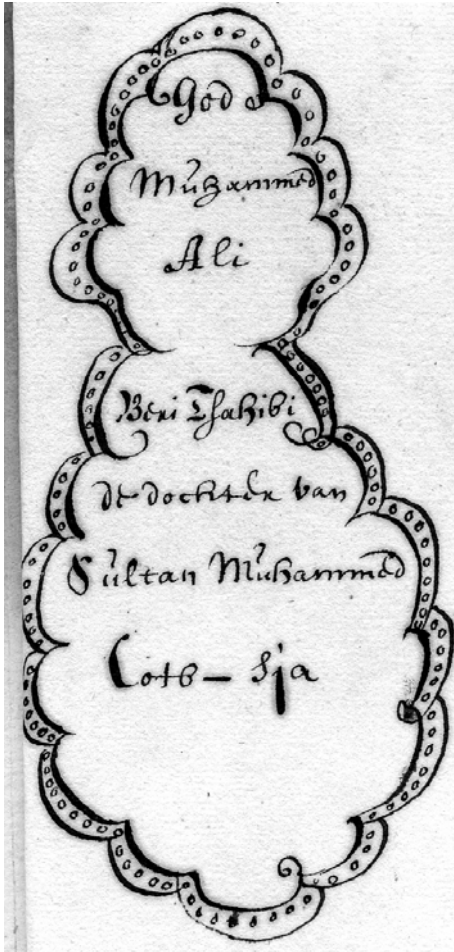 God
Muhammed
Ali
Beri Thahibi
de dochter van
Sultan Muhammed
Cotb - Sja